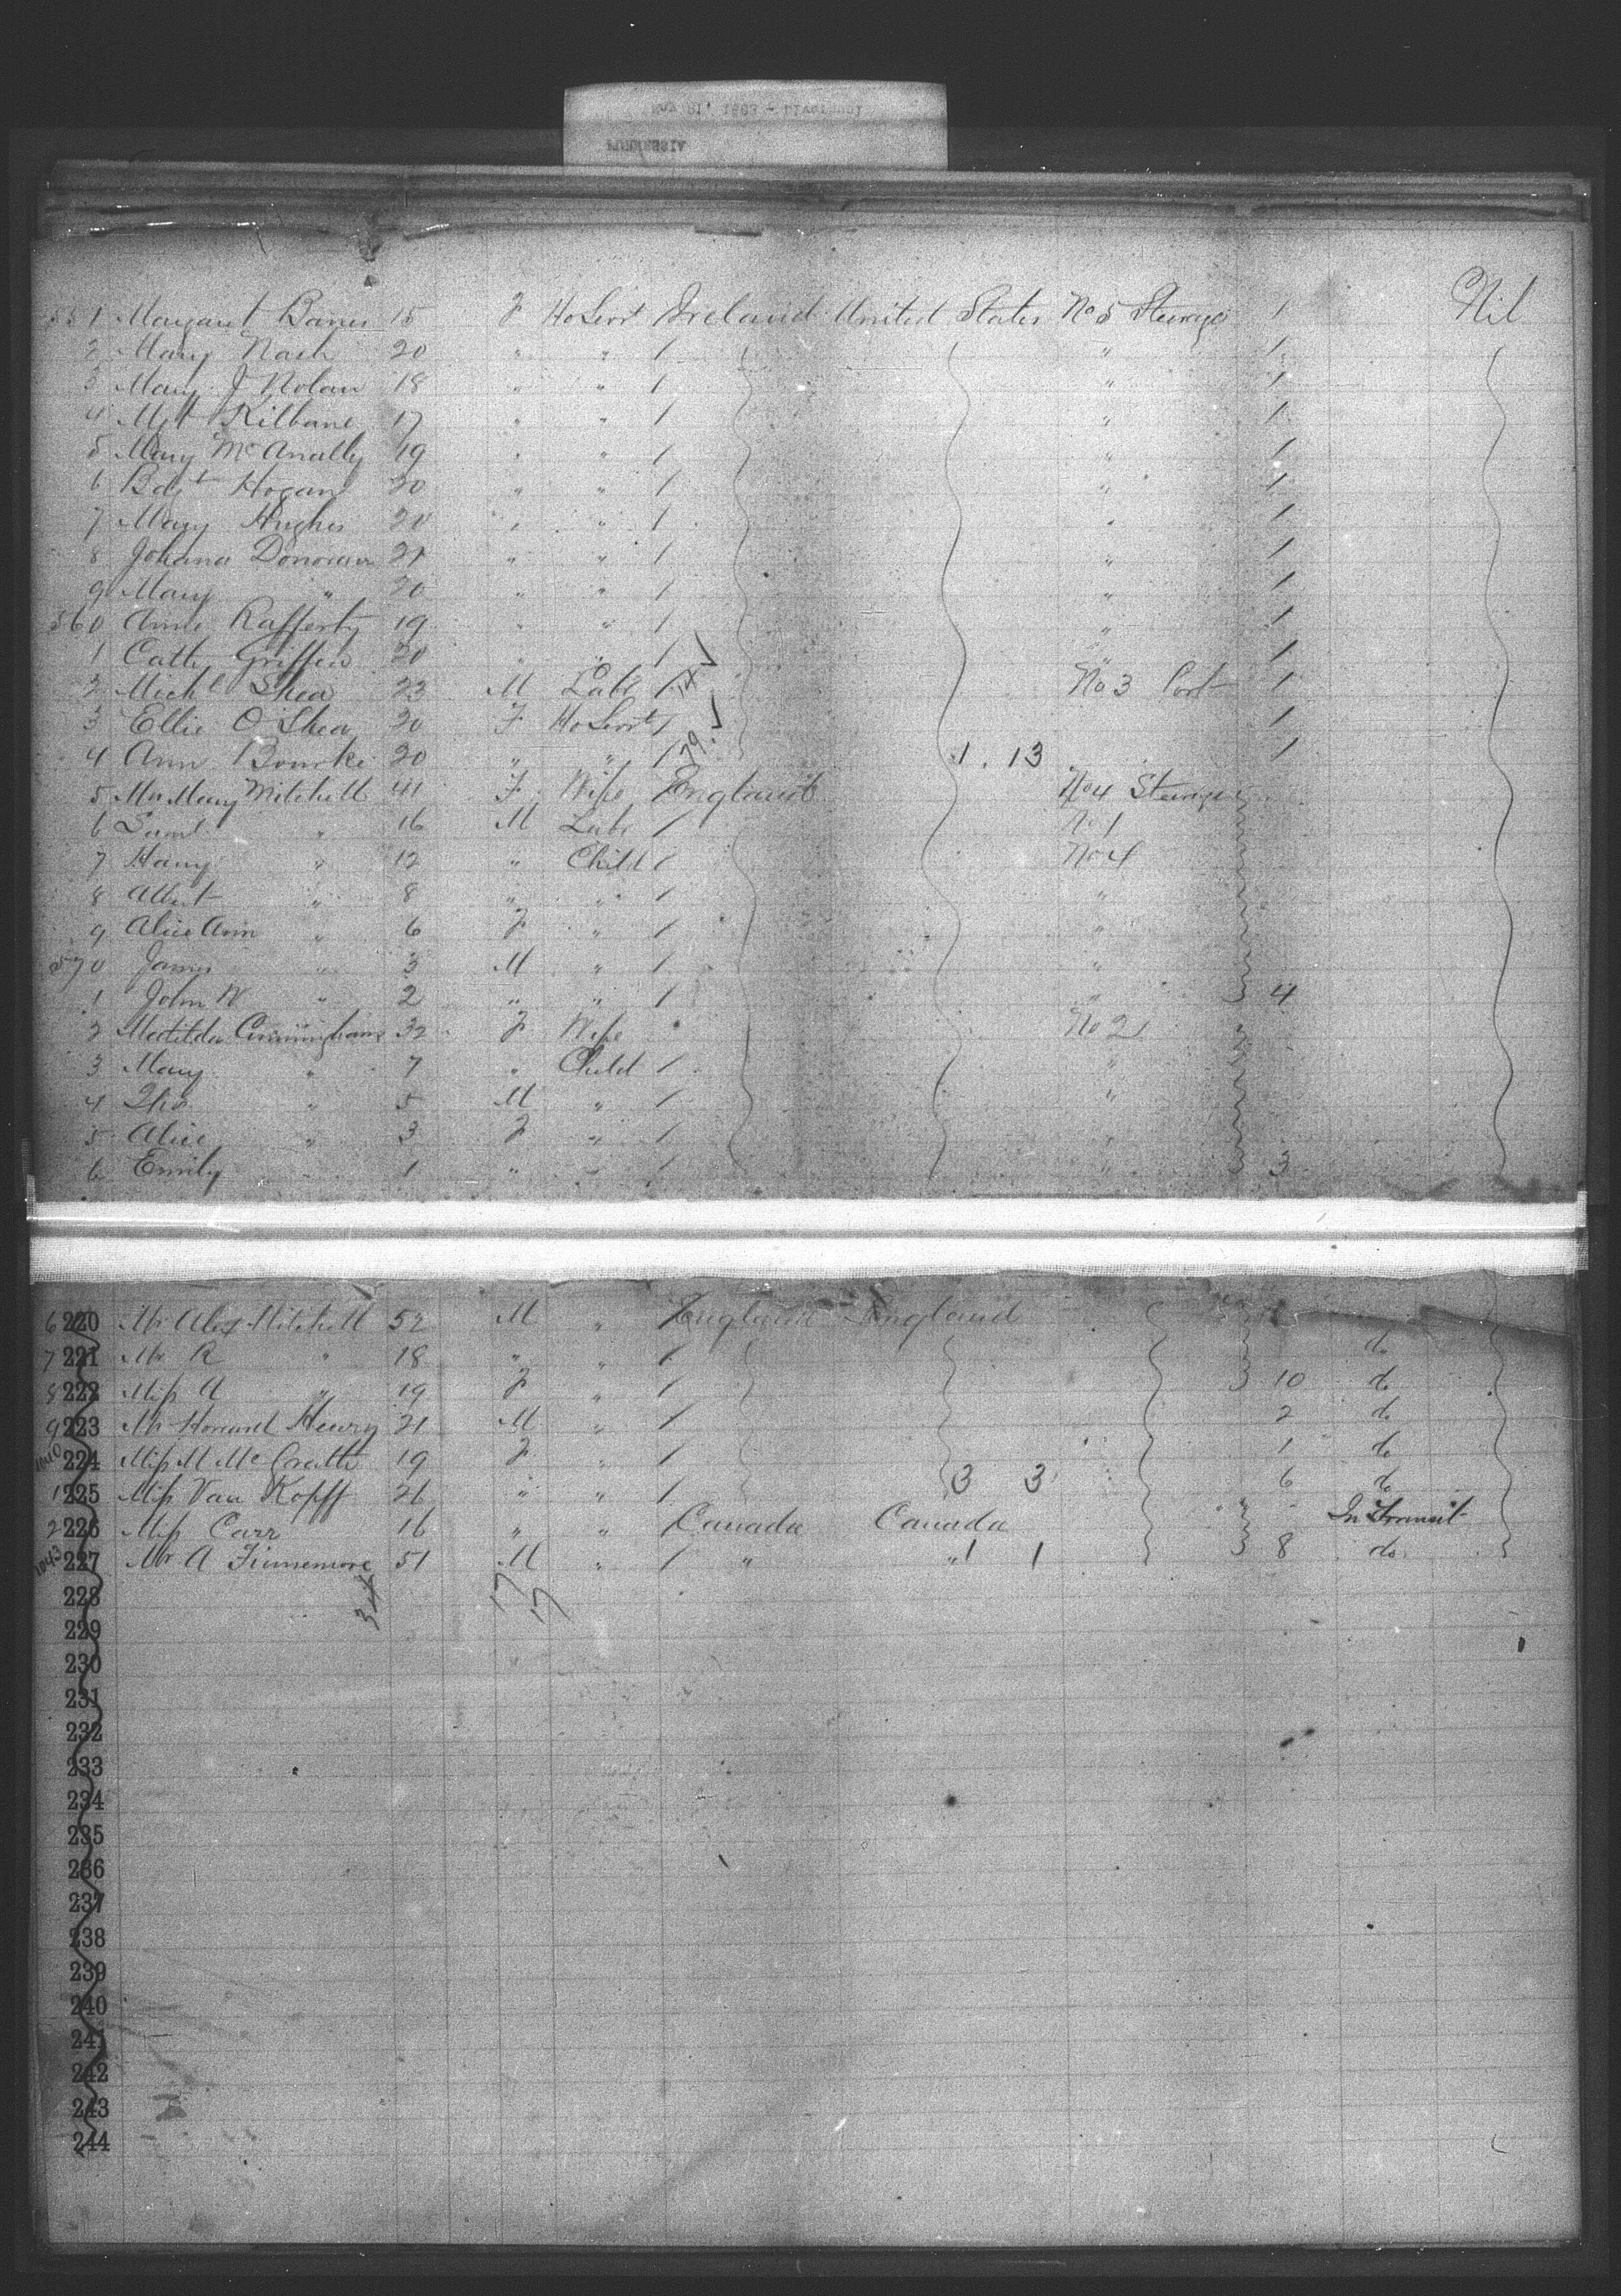 551 Margaret Barnes 15 F HoServt Ireland United States No 5 Steerage 1 Nil
2 Mary Nash 20 " " / " 1
3 Mary J Nolan 18 " " / " 1
4 Mgt Kilbane 17 " " / " 1
5 Mary McAnally 19 " " / " 1
6 Bdgt Hogan 20 " " / " 1
7 Mary Hughes 20 " " / " 1
8 Johana Donovan 21 " " / " 1
9 Mary " 20 " " / " 1
560 Anne Rafferty 19 " " / " 1
1 Cath Griffin 20 " " / " 1
2 Michl Shea 23 M Labr / 14 No 3 Port 1
3 Ellie O'Shea 20 F HoServt / 1
4 Ann Bourke 20 " " / 79 1 . 13 " 1
5 Mrs Mary Mitchell 41 F Wife England No 4 Steerage
6 Saml " 16 M Labr / No 1
7 Harry " 12 " Child / No 4
8 Albert " 8 " " / "
9 Alice Ann " 6 F " / "
570 James " 3 M " / "
1 John W " 2 " " / " 4
2 Matilda Cunningham 32 F Wife No 2
3 Mary " 7 " Child / "
4 Thos " 5 M " / "
5 Alice " 3 F " / "
6 Emily " 1 " " / " 3
6 220 Mr Alex Mitchell 52 M " England England
7 221 Mr R " 18 " " / do
8 222 Miss A " 19 F " / 10 do
9 223 Mr Howard Henry 21 M " / 2 do
1040 224 Miss M McCrath 19 F " / 1 do
1 225 Miss Van Kopff 26 " " / 3 3 6 do
2 226 Miss Carr 16 " " Canada Canada " " In Transit
1043 227 Mr A Finnemore 51 M " / " " 1 1 8 do
228 34 17 17
229
230
231
232
233
234
235
236
237
238
239
240
241
242
243
244